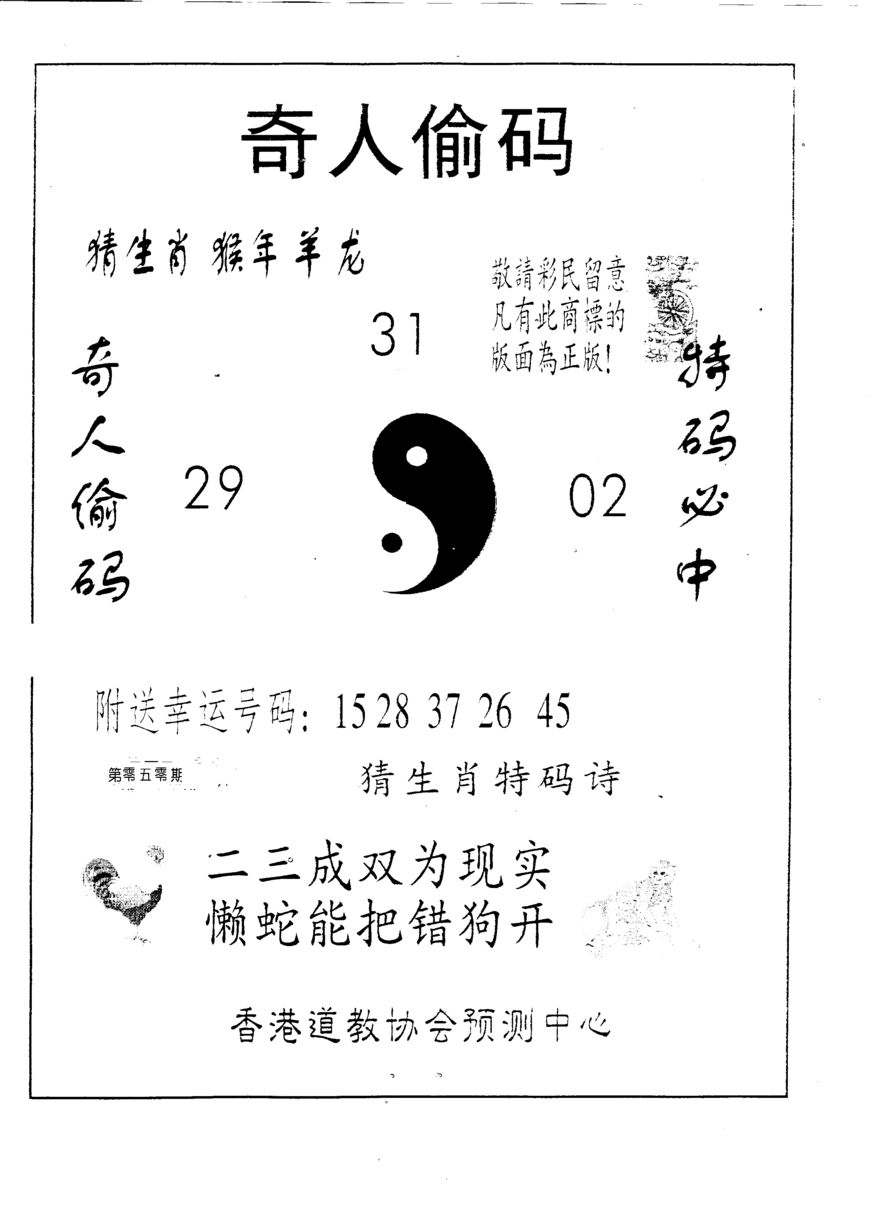 奇人偷码
猜生肖 猴年羊龙
敬請彩民留意
凡有此商標的
版面為正版!
31
奇人偷码
29
02
特码必中
附送幸运号码: 15 28 37 26 45
第零五零期
猜生肖特码诗
二三成双为现实
懒蛇能把错狗开
香港道教协会预测中心